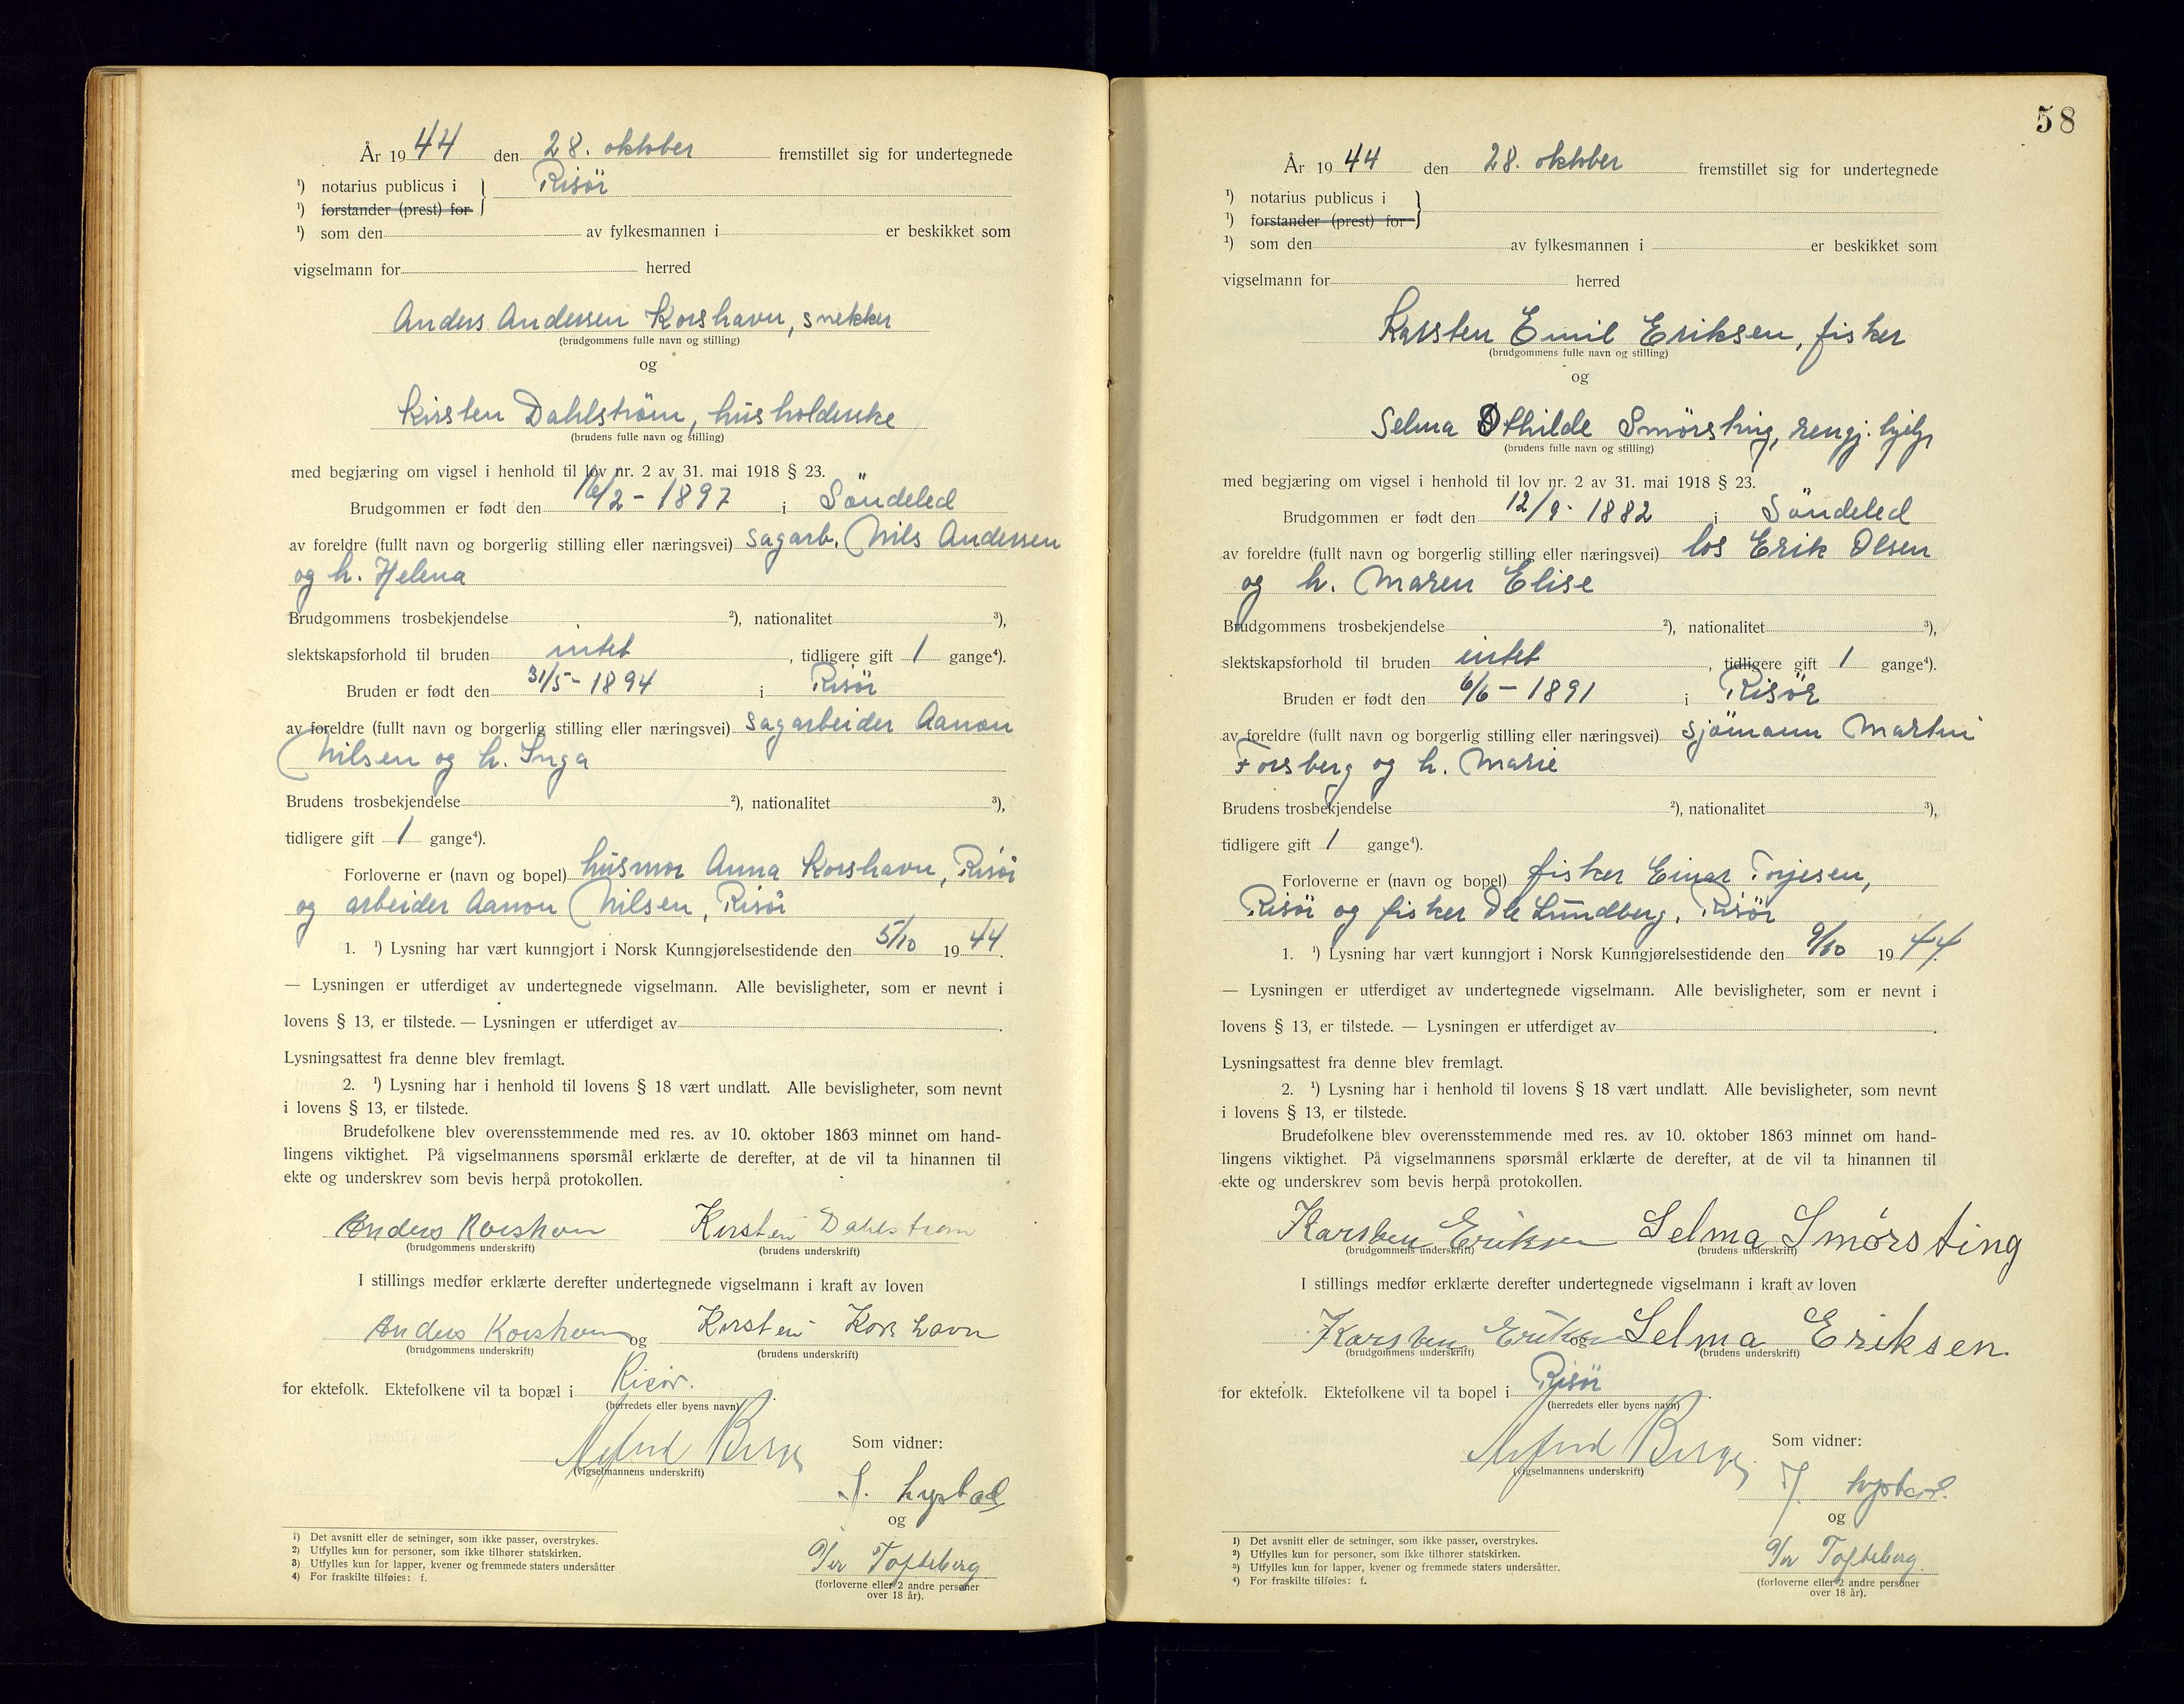 År 1944 den 28. oktober fremstillet sig for undertegnede
¹) notarius publicus i } Risör
¹) forstander (prest) for
¹) som den av fylkesmannen i er beskikket som
vigselmann for herred
Anders Andersen Korshavn, snekker
(brudgommens fulle navn og stilling)
og
Kirsten Dahlström, husholderske
(brudens fulle navn og stilling)
med begjæring om vigsel i henhold til lov nr. 2 av 31. mai 1918 § 23.
Brudgommen er født den 16/2 - 1897 i Söndeled
av foreldre (fullt navn og borgerlig stilling eller næringsvei) sagarb. Nils Andersen
og h. Helena
Brudgommens trosbekjendelse ²), nationalitet ³),
slektskapsforhold til bruden intet, tidligere gift 1 gange⁴).
Bruden er født den 31/5 - 1894 i Risör
av foreldre (fullt navn og borgerlig stilling eller næringsvei) sagarbeider Aanon
Nilsen og h. Inga
Brudens trosbekjendelse ²), nationalitet ³),
tidligere gift 1 gange⁴).
Forloverne er (navn og bopel) husmor Anna Korshavn, Risör
og arbeider Aanon Nilsen, Risör
1. ¹) Lysning har vært kunngjort i Norsk Kunngjørelsestidende den 5/10 1944.
— Lysningen er utferdiget av undertegnede vigselmann. Alle bevisligheter, som er nevnt i
lovens § 13, er tilstede. — Lysningen er utferdiget av .
Lysningsattest fra denne blev fremlagt.
2. ¹) Lysning har i henhold til lovens § 18 vært undlatt. Alle bevisligheter, som nevnt
i lovens § 13, er tilstede.
Brudefolkene blev overensstemmende med res. av 10. oktober 1863 minnet om hand-
lingens viktighet. På vigselmannens spørsmål erklærte de derefter, at de vil ta hinannen til
ekte og underskrev som bevis herpå protokollen.
Anders Korshavn Kirsten Dahlstrøm
(brudgommens underskrift) (brudens underskrift)
I stillings medfør erklærte derefter undertegnede vigselmann i kraft av loven
Anders Korshavn og Kirsten Korshavn
(brudgommens underskrift) (brudens underskrift)
for ektefolk. Ektefolkene vil ta bopæl i Risør.
(herredets eller byens navn)
Alfred Berge
(vigselmannens underskrift)
Som vidner:
J. Lystad
og
Per Tofteberg
(forloverne eller 2 andre personer
over 18 år).
1) Det avsnitt eller de setninger, som ikke passer, overstrykes.
2) Utfylles kun for personer, som ikke tilhører statskirken.
3) Utfylles kun for lapper, kvener og fremmede staters undersåtter
4) For fraskilte tilføies: f.
58
År 1944 den 28. oktober fremstillet sig for undertegnede
¹) notarius publicus i }
¹) forstander (prest) for
¹) som den av fylkesmannen i er beskikket som
vigselmann for herred
Karsten Emil Eriksen, fisker
(brudgommens fulle navn og stilling)
og
Selma Othilde Smørsting, rengj. hjelp
(brudens fulle navn og stilling)
med begjæring om vigsel i henhold til lov nr. 2 av 31. mai 1918 § 23.
Brudgommen er født den 12/9 - 1882 i Söndeled
av foreldre (fullt navn og borgerlig stilling eller næringsvei) los Erik Olsen
og h. Maren Elise
Brudgommens trosbekjendelse ²), nationalitet ³),
slektskapsforhold til bruden intet, tidligere gift 1 gange⁴).
Bruden er født den 6/6 - 1891 i Risör
av foreldre (fullt navn og borgerlig stilling eller næringsvei) sjömann Martin
Forsberg og h. Marie
Brudens trosbekjendelse ²), nationalitet ³),
tidligere gift 1 gange⁴).
Forloverne er (navn og bopel) fisker Einar Torjesen,
Risör og fisker Ole Lundberg, Risör
1. ¹) Lysning har vært kunngjort i Norsk Kunngjørelsestidende den 9/10 1944.
— Lysningen er utferdiget av undertegnede vigselmann. Alle bevisligheter, som er nevnt i
lovens § 13, er tilstede. — Lysningen er utferdiget av .
Lysningsattest fra denne blev fremlagt.
2. ¹) Lysning har i henhold til lovens § 18 vært undlatt. Alle bevisligheter, som nevnt
i lovens § 13, er tilstede.
Brudefolkene blev overensstemmende med res. av 10. oktober 1863 minnet om hand-
lingens viktighet. På vigselmannens spørsmål erklærte de derefter, at de vil ta hinannen til
ekte og underskrev som bevis herpå protokollen.
Karsten Eriksen Selma Smørsting
(brudgommens underskrift) (brudens underskrift)
I stillings medfør erklærte derefter undertegnede vigselmann i kraft av loven
Karsten Eriksen og Selma Eriksen
(brudgommens underskrift) (brudens underskrift)
for ektefolk. Ektefolkene vil ta bopel i Risör.
(herredets eller byens navn)
Alfred Berge
(vigselmannens underskrift)
Som vidner:
J. Lystad
og
Per Tofteberg
(forloverne eller 2 andre personer
over 18 år).
1) Det avsnitt eller de setninger, som ikke passer, overstrykes.
²) Utfylles kun for personer, som ikke tilhører statskirken.
³) Utfylles kun for lapper, kvener og fremmede staters undersåtter.
⁴) For fraskilte tilføies: f.